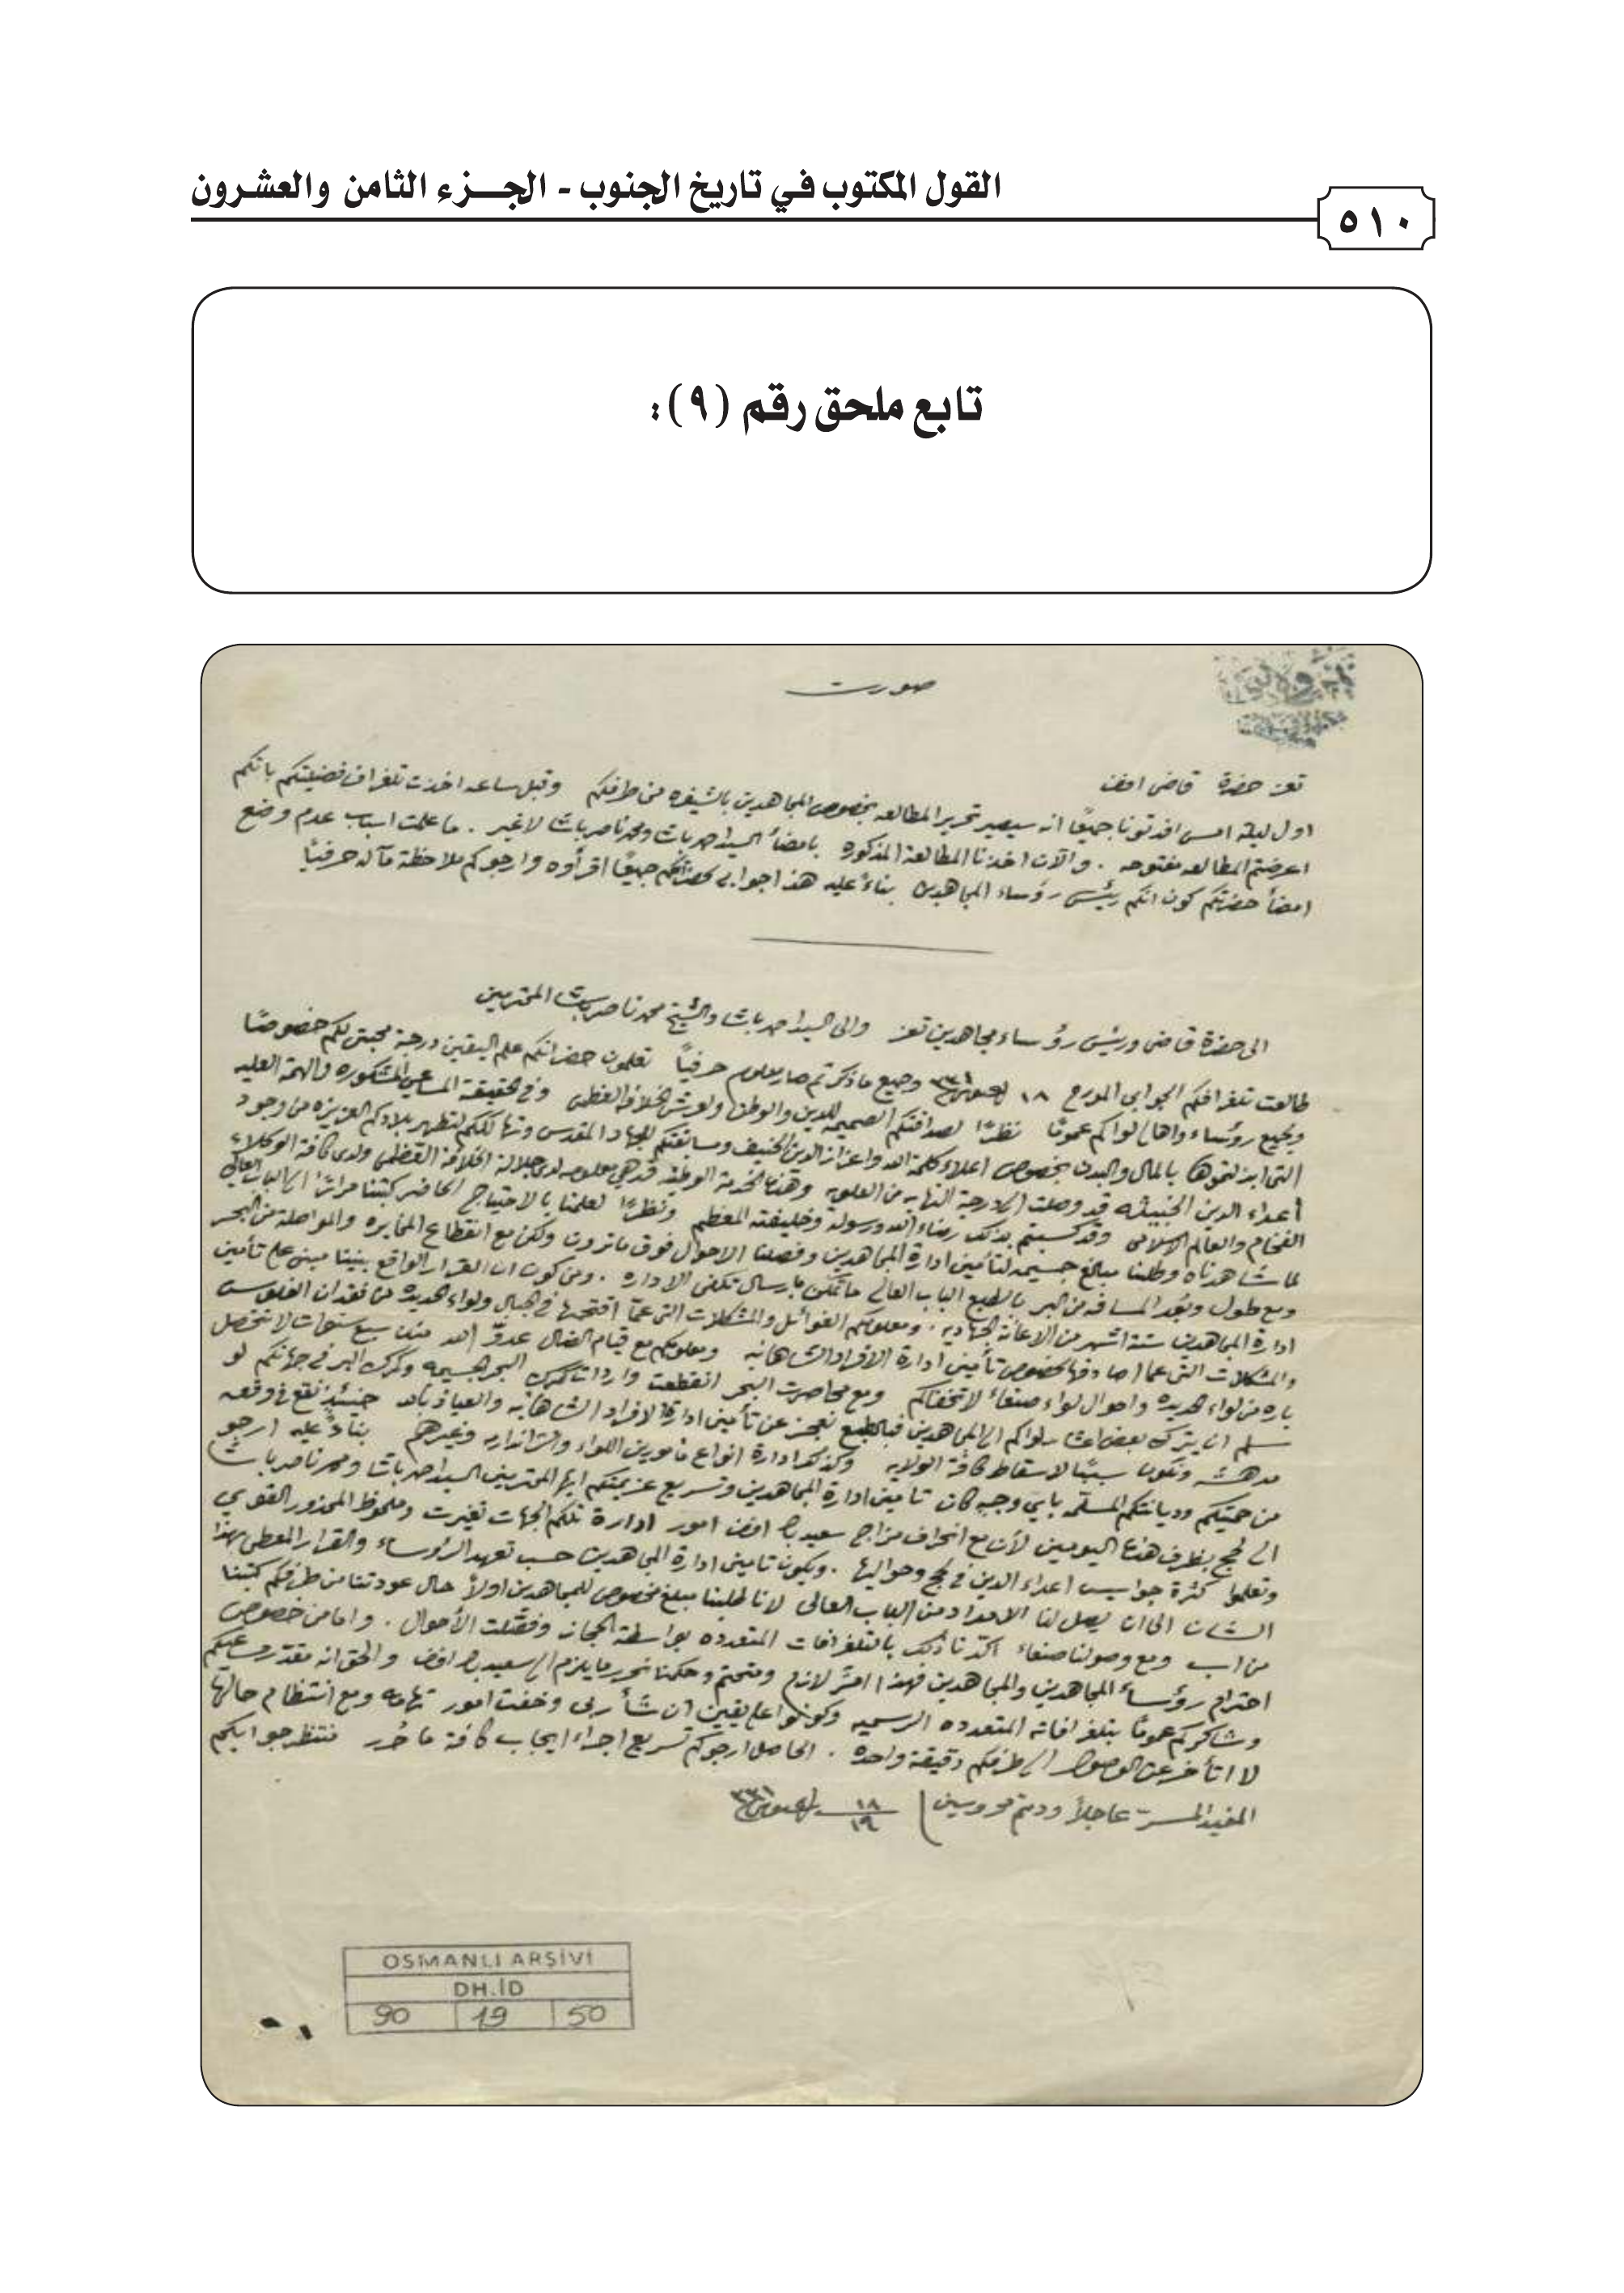 القول المكتوب في تاريخ الجنوب - الجزء الثامن والعشرون
٥١٠
تابع ملحق رقم (٩):
صورت
تعز حضرة قاضى افند
اول ليلة امس افدتونا جميعًا انه سيصير تحرير المطالعه بخصوص المجاهدين بالشيفره من طرفكم وقبل ساعه اخذت تلغراف فضيلتكم بانكم
اعرضتم المطالعه مفتوحه . والآن اخذنا المطالعة المذكوره بامضأ السيد احمد باشا ومحمد ناصر باشا لاغير . ما علمت اسباب عدم وضع
امضأ حضرتكم كون انكم رئيس رؤساء المجاهدين بناءً عليه هذا جوابى لحضراتكم جميعًا اقرأوه وارجوكم ملاحظة مآله حرفيًا
الى حضرة قاضى ورئيس رؤساء مجاهدين تعز والى السيد احمد باشا والشيخ محمد ناصر باشا المحترمين
طالعت تلغرافكم الجوابى المورخ ١٨ ٣٣١ وجميع ما ذكرتم صار معلوم حرفيًا تعلمون حضراتكم علم اليقين درجة محبتى لكم خصوصًا
وجميع رؤساء واهالى لواكم عمومًا نظرًا لصداقتكم الصميميه للدين والوطن ولعرش الخلافة العظمى وفى الحقيقة المساعى المشكوره والهمة العليه
التى ابذلتموها بالمال والبدن بخصوص اعلاء كلمة الله واعزاز الدين الحنيف ومسابقتكم للجهاد المقدس وتهالككم لتطهير بلادكم العزيزه من وجود
أعداء الدين الخبيثه قد وصلت الى درجة النهايه من العلويه وهذه الخدمة الوطنيه قد هى معلومه لدى جلالة الخلافة العظمى ولدى كافة الوكلاء
الفخام والعالم الاسلامى وقد كسبتم بذلك رضاء الله ورسوله وخليفته المعظم ونظرًا لعلمنا بالاحتياج الحاضر كتبنا مرارًا الى الباب العالى
لما شاهدناه وطلبنا مبالغ جسيمه لتأمين ادارة المجاهدين وفصلنا الاحوال فوق ما ترون ولكن مع انقطاع المخابره والمواصله من البحر
ومع طول وبُعد المسافه من البر بالطبع الباب العالى ما تمكن بارسال تكفى الاداره . ومن كون ان القرار الواقع بيننا مبنى على تأمين
ادارة المجاهدين ستة اشهر من الاعانة الجهاديه . ومعلومكم الغوائل والمشكلات التى عمّا افتتحها فى الجبال ولواء الحديده من فقدان الفلوس
والمشكلات التى عما اصادفها بخصوص تأمين ادارة الافراد الشاهانيه ومعلومكم مع قيام الضال عدوّ الله منذ سبع سنوات لا تتحصل
باره من لواء الحديده واحوال لواء صنعاء لا تخفاكم ومع محاصرت البحر انقطعت واردات كمرك البحر الجسيمه وكمرك البر فى جهاتكم لو
نسلم ان يترك بعض اعشار لواكم الى المجاهدين فبالطبع نعجز عن تأمين ادارة الافراد الشاهانيه والعياذ بالله حينئذٍ نقع فى وقعه
مدهشه ونكون سببًا لاسقاط كافة الولايه وكذلك ادارة انواع مأمورين اللواء والژاندارمه وغيرهم بناءً عليه ارجو
من حميتكم وديانتكم المسلّمه بايّ وجهٍ كان تامين ادارة المجاهدين وتسريع عزيمتكم ايها المحترمين السيد احمد باشا ومحمد ناصر باشا
الى لحج بظرف هذه اليومين لأن مع انحراف مزاج سعيد باشا افندم امور ادارة تلكم الجهات تغيرت وملحوظ المحذور القوي
وتعلموا كثرة جواسيس اعداء الدين فى لحج وحواليها . ويكون تامين ادارة المجاهدين حسب تعهد الرؤساء والقرار المعطى بهذا
الشان الى ان يصل لنا الامداد من الباب العالى لانا طلبنا مبلغ مخصوص للمجاهدين اولاً حال عودتنا من طرفكم كتبنا
من اب ومع وصولنا صنعاء اكّدنا ذلك بالتلغرافات المتعدده بواسطة الحجاز وفصّلت الأحوال . واما من خصوص
احترام رؤساء المجاهدين والمجاهدين فهذا امرٌ لازم ومتحتم وحكمنا نحرر ما يلزم الى سعيد باشا افندم والحق انه مقدّر مساعيكم
وشاكركم عمومًا بتلغرافاته المتعدده الرسميه وكونوا على يقين ان شأ ربى وخفت امور تهامه ومع انتظام حالها
لا اتأخر عن الوصول الى طرفكم دقيقة واحده . الحاصل ارجوكم تسريع اجراء ايجاب كافة ما حُرر ننتظر جوابكم
المفيد المسرّ عاجلاً ودمتم محروسين ١٨ ١٩ ٣٣١
OSMANLI ARŞİVİ
DH.İD
90 19 50